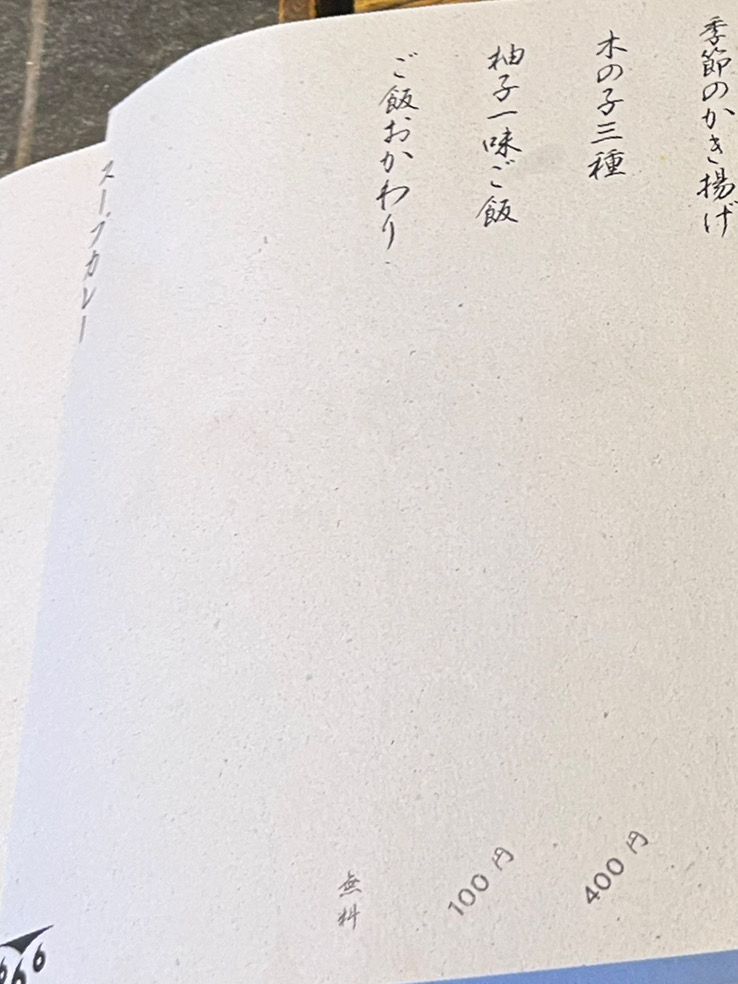 季節のかき揚げ
木の子三種
400円
柚子一味ご飯
100円
ご飯おかわり
無料
スープカレー